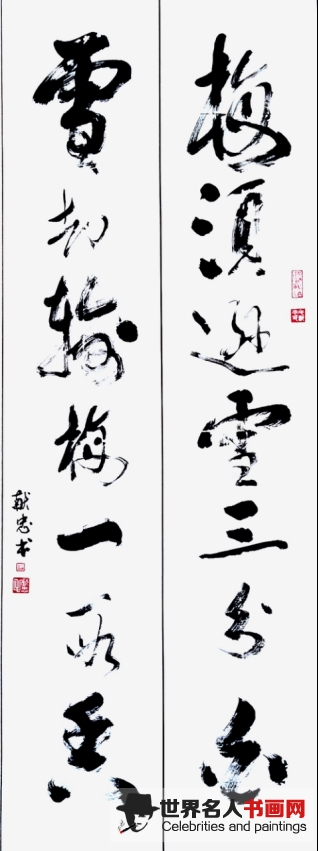 梅須遜雪三分白
雪却輸梅一段香
献忠书
世界名人书画网
Celebrities and paintings